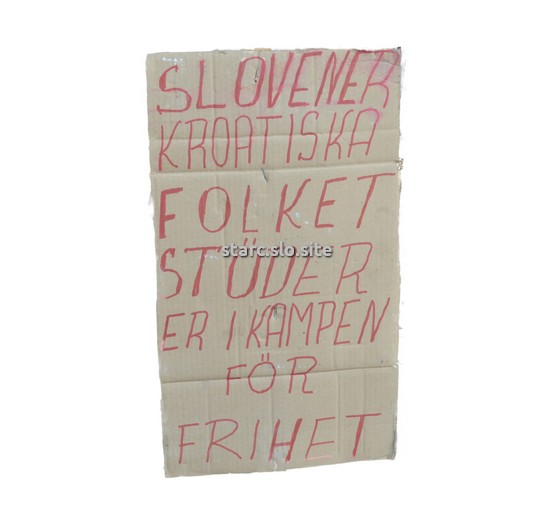 SLOVENER
KROATISKA
FOLKET
starc.slo.site
STÜDER
ER I KAMPEN
FÖR
FRIHET